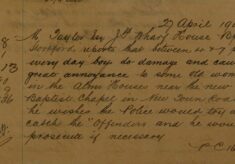 27 April 19
Mr Taylor Esq J.P. Wharf House B
Stortford reports that between 4 & 7 p
every day boys do damage and cau
great annoyance to some old wom
in the Alms Houses near the new
Baptist Chapel in New Town Road
he wishes the Police would try &
catch the "Offenders and he woul
prosecute if necessary
P.C.
8
13
9
36